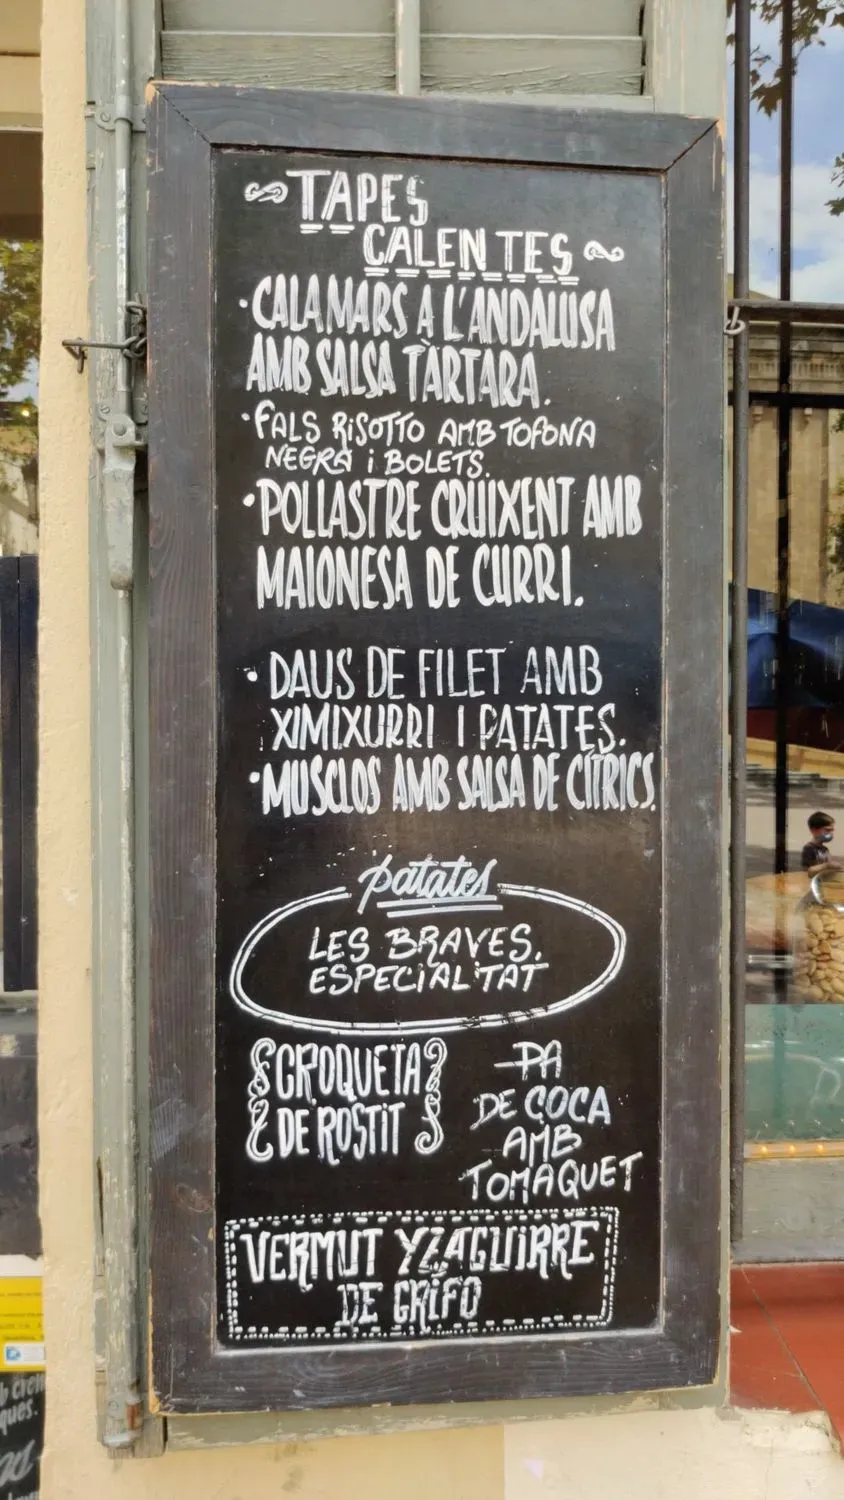 TAPES
CALENTES
· CALAMARS A L'ANDALUSA
AMB SALSA TÀRTARA.
· FALS RISOTTO AMB TOFONA
NEGRA I BOLETS.
· POLLASTRE CRUIXENT AMB
MAIONESA DE CURRI.
· DAUS DE FILET AMB
XIMIXURRI I PATATES.
· MUSCLOS AMB SALSA DE CÍTRICS.
patates
LES BRAVES.
ESPECIALITAT
CROQUETA
DE ROSTIT
PA
DE COCA
AMB
TOMAQUET
VERMUT YZAGUIRRE
DE GRIFO